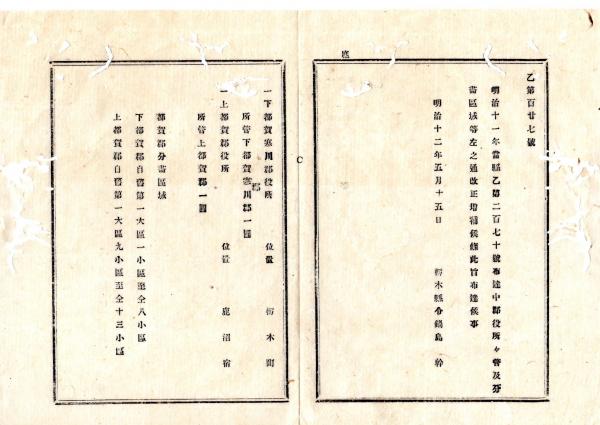 乙第百廿七號
明治十一年當縣乙第二百七十號布達中郡役所々管及分
畫區域等左之通改正增補候條此旨布達候事
明治十二年五月十五日　栃木縣令鍋島　幹
一下都賀寒川郡役所　位置　栃木町
所管下都賀寒川郡一圓
郡
一上都賀郡役所　位置　鹿沼宿
所管上都賀郡一圓
都賀郡分畫區域
下都賀郡自舊第一大區一小區至仝八小區
上都賀郡自舊第一大區九小區至仝十三小區